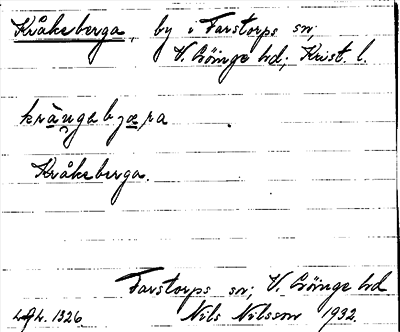 Kråkeberga, by i Farstorps sn;
V. Göinge hd; Krist. l.
krängabjæra
Kråkeberga.
Farstorps sn; V. Göinge hd
Nils Nilsson 1932.
1326